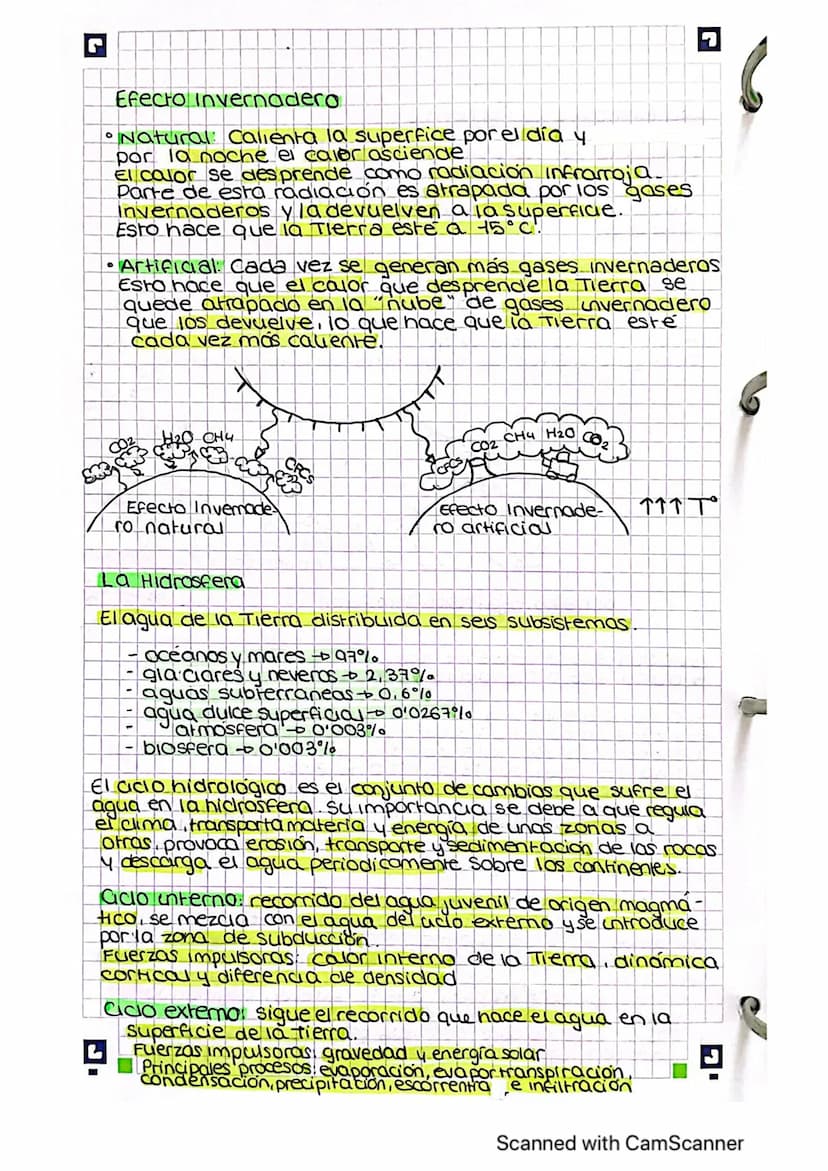 Efecto Invernadero
• Natural: Calienta la superfice por el día y
por la noche el calor asciende
El calor se desprende como radiación infrarroja.
Parte de esta radiación es atrapada por los gases
invernaderos y la devuelven a la superficie.
Esto hace que la Tierra esté a 15°C.
• Artificial: Cada vez se generan más gases invernaderos
Esto hace que el calor que desprende la Tierra se
quede atrapado en la "nube" de gases invernadero
que los devuelve, lo que hace que la Tierra esté
cada vez más caliente.
CO2 H2O CH4 CFCS
CFCS CO2 CH4 H2O CO2
Efecto Invernade-
ro natural
Efecto Invernade-
ro artificial
↑↑↑ T°
La Hidrosfera
El agua de la Tierra distribuida en seis subsistemas.
- océanos y mares → 97%
- glaciares y neveros → 2,37%
- aguas subterráneas → 0,6%
- agua dulce superficial → 0'0267%
- atmósfera → 0'003%
- biosfera → 0'003%
El ciclo hidrológico es el conjunto de cambios que sufre el
agua en la hidrosfera. Su importancia se debe a que regula
el clima, transporta materia y energía de unas zonas a
otras, provoca erosión, transporte y sedimentación de las rocas
y descarga el agua periódicamente sobre los continentes.
Ciclo interno: recorrido del agua juvenil de origen magmá-
tico, se mezcla con el agua del ciclo externo y se introduce
por la zona de subducción.
Fuerzas impulsoras: calor interno de la Tierra, dinámica
cortical y diferencia de densidad
Ciclo externo: sigue el recorrido que hace el agua en la
superficie de la tierra.
Fuerzas impulsoras: gravedad y energía solar
Principales procesos: evaporación, evaportranspiración,
condensación, precipitación, escorrentia e infiltración
Scanned with CamScanner